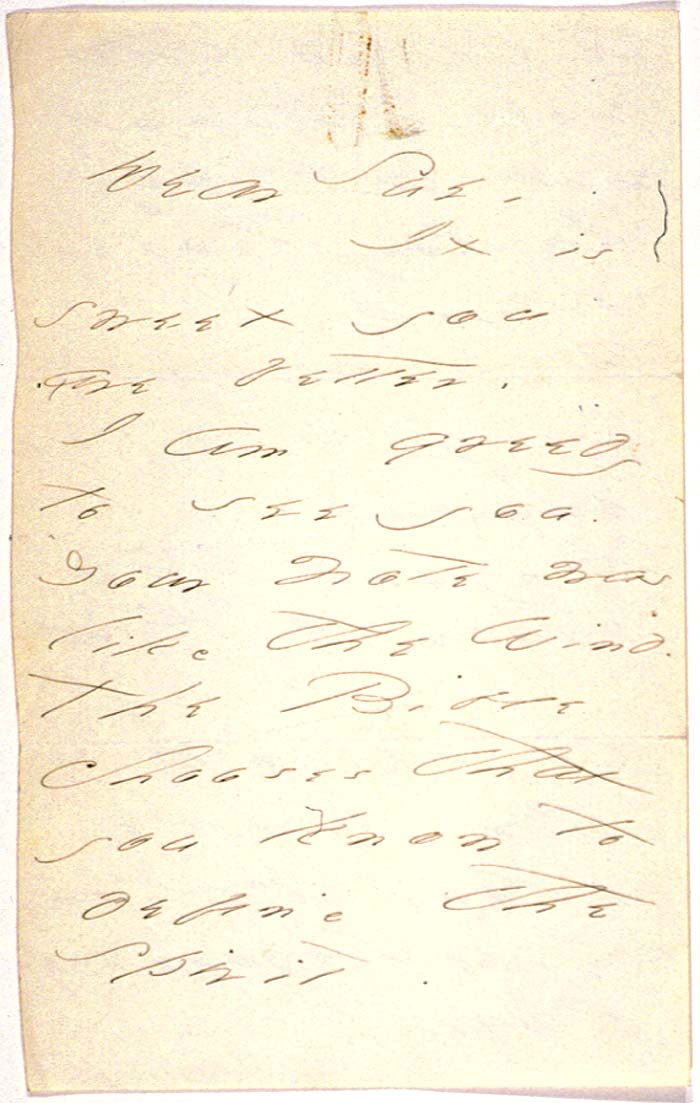 Dear Sue.
It is
sweet you
are better.
I am greedy
to see you.
Your Note was
like the Wind.
The Bible
chooses that
you know to
define the
Spirit.